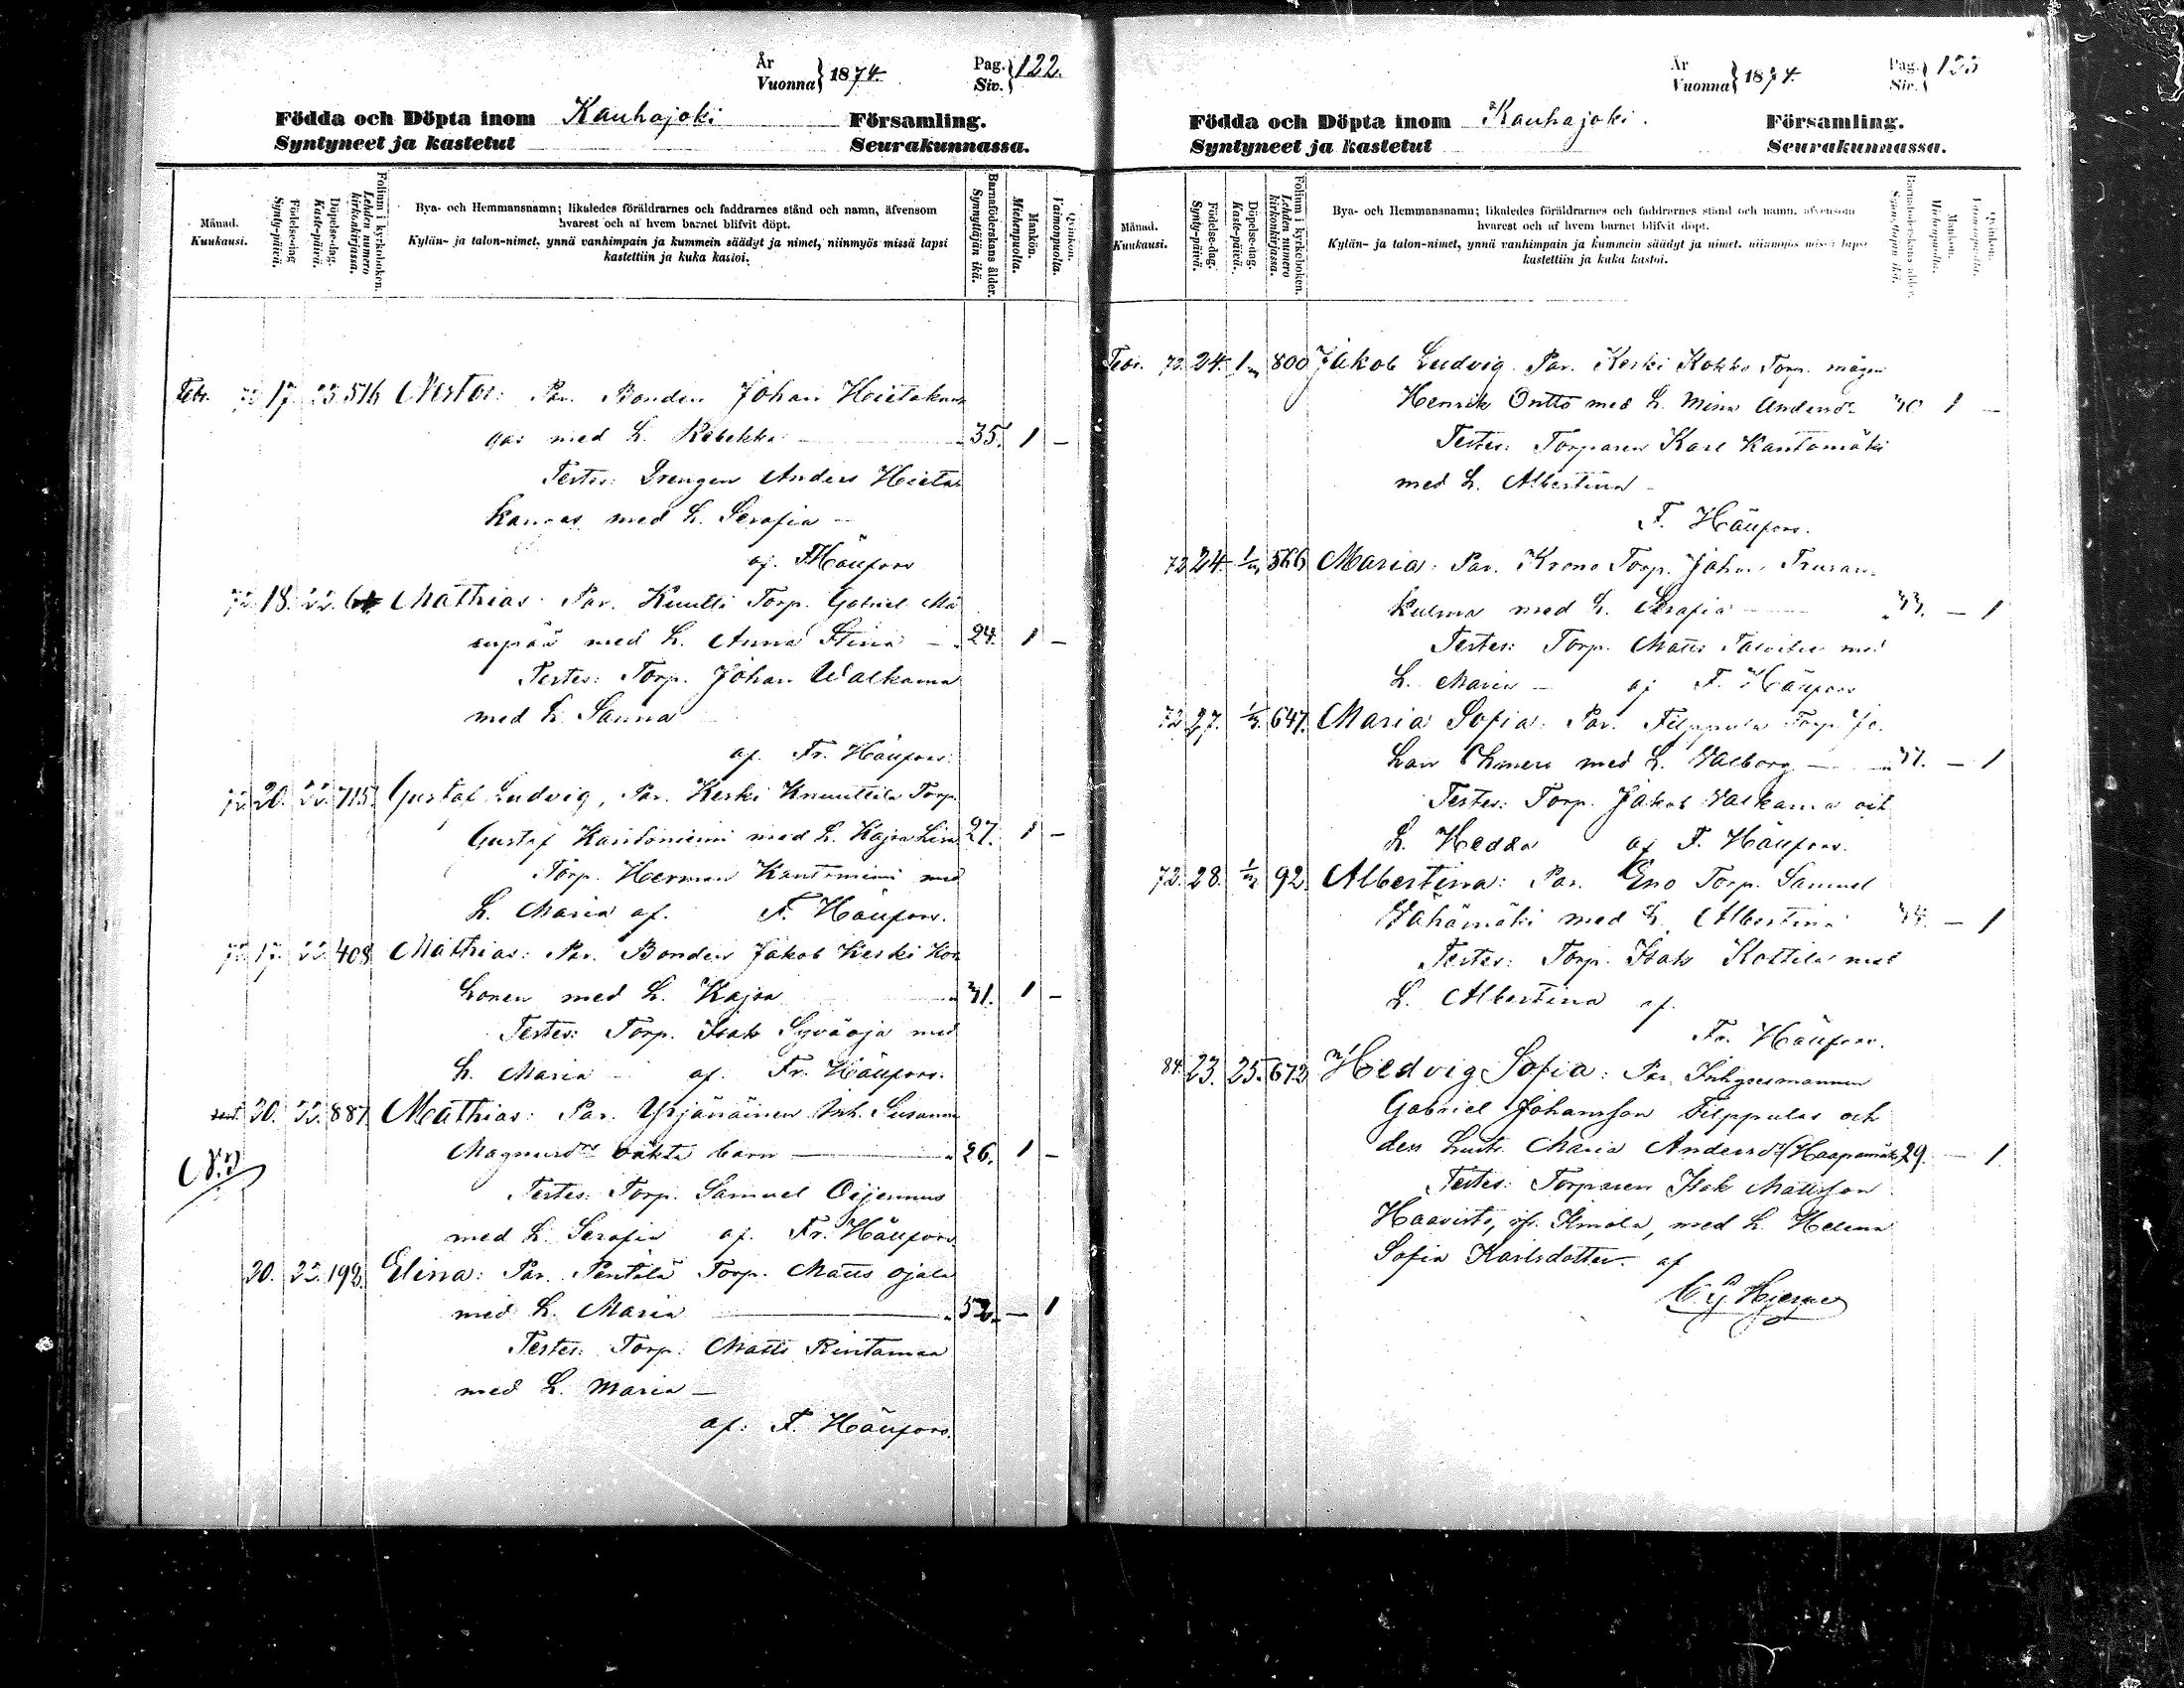 År
Vuonna } 1874.
Pag.
Siv. } 122.
Födda och Döpta inom Kauhajoki Församling.
Syntyneet ja kastetut Seurakunnassa.
Månad.
Kuukausi.
Födelse-dag
Synty-päivä.
Döpelse-dag.
Kaste-päivä.
Folium i kyrkoboken.
Lehden numero
kirkonkirjassa.
Bya- och Hemmansnamn; likaledes föräldrarnes och faddrarnes stånd och namn, äfvensom
hvarest och af hvem barnet blifvit döpt.
Kylän- ja talon-nimet, ynnä vanhimpain ja kummein säädyt ja nimet, niinmyös missä lapsi
kastettiin ja kuka kastoi.
Barnaföderskans ålder.
Synnyttäjän ikä.
Mankön.
Miehenpuolta.
Qvinkön.
Vaimonpuolta.
Febr. 17. 516 Nestor: Par. Bonden Johan Hietakan
gas med h. Rebekka 35. 1 –
Testes: Drengen Anders Hieta
kangas med h. Serafia –
af. F Häufors
18. 22. Mathias. Par. Knutti Torp. Gabriel Mä
enpää med h. Anna Stina – 24. 1 –
Testes: Torp. Johan Walkama
med h. Sanna
af. Fr. Häufors.
20. 22. 715. Gustaf Ludvig, Par. Keski Knuuttila Torp.
Gustaf Kantoniemi med h. Kajsa Lisa 27. 1 –
Torp. Herman Kantoniemi med
h. Maria af. F. Häufors.
17. 22. 408. Mathias: Par. Bonden Jakob Keski Kor
honen med h. Kajsa 41. 1 –
Testes: Torp. Isak Syväoja med
h. Maria – af. Fr. Häufors.
20. 22. 887. Mathias: Par. Yrjänäinen Inh. Susanna
Magnusdr oäkta barn 26. 1 –
Testes: Torp. Samuel Oijennus
med h. Serafia af. Fr. Häufors
20. 22. 192. Elina: Par. Pentilä Torp. Matts Ojala
med h. Maria 52. – 1
Testes: Torp. Matts Rintamaa
med h. Maria –
af: F. Häufors.
År
Vuonna } 1874.
Pag.
Siv. } 123
Födda och Döpta inom Kauhajoki. Församling.
Syntyneet ja kastetut Seurakunnassa.
Månad.
Kuukausi.
Födelse-dag.
Synty-päivä.
Döpelse-dag.
Kaste-päivä.
Folium i kyrkoboken.
Lehden numero
kirkonkirjassa.
Bya- och Hemmansnamn; likaledes föräldrarnes och faddrarnes stånd och namn, äfvensom
hvarest och af hvem barnet blifvit döpt.
Kylän- ja talon-nimet, ynnä vanhimpain ja kummein säädyt ja nimet, niinmyös missä lapsi
kastettiin ja kuka kastoi.
Barnaföderskans ålder.
Synnyttäjän ikä.
Mankön.
Miehenpuolta.
Qvinkön.
Vaimonpuolta.
Febr. 72. 24. 800 Jakob Ludvig. Par. Keski Kokko Torp. mågen
Henrik Ontto med h. Mina Andersdr 40 1 –
Testes: Torparen Karl Kantomäki
med h. Albertina –
F. Häufors.
72 24. 566 Maria: Par. Krono Torp. Johan
kulma med h. Serafia – 1
Testes: Torp. Matts med
h. Maria – af F. Häufors
72. 27. 647. Maria Sofia: Par. Filppula Torp. Jo
han med h. Walborg – – 1
Testes: Torp. Jakob Walkama och
h. Hedda af F. Häufors.
72. 28. 92 Albertina: Par. Eno Torp. Samuel
Wähämäki med h. Albertina – 1
Testes: Torp. Isak Kottila med
h. Albertina af.
Fr. Häufors.
84. 23. 25. 673 Hedvig Sofia: Par. Inhysesmannen
Gabriel Johansson Filppulas och
dess hustr. Maria Andersdr (Haapamäki) 29. – 1.
Testes: Torparen Isak Mattsson
Haavisto, med h. Helena
Sofia Karlsdotter. af